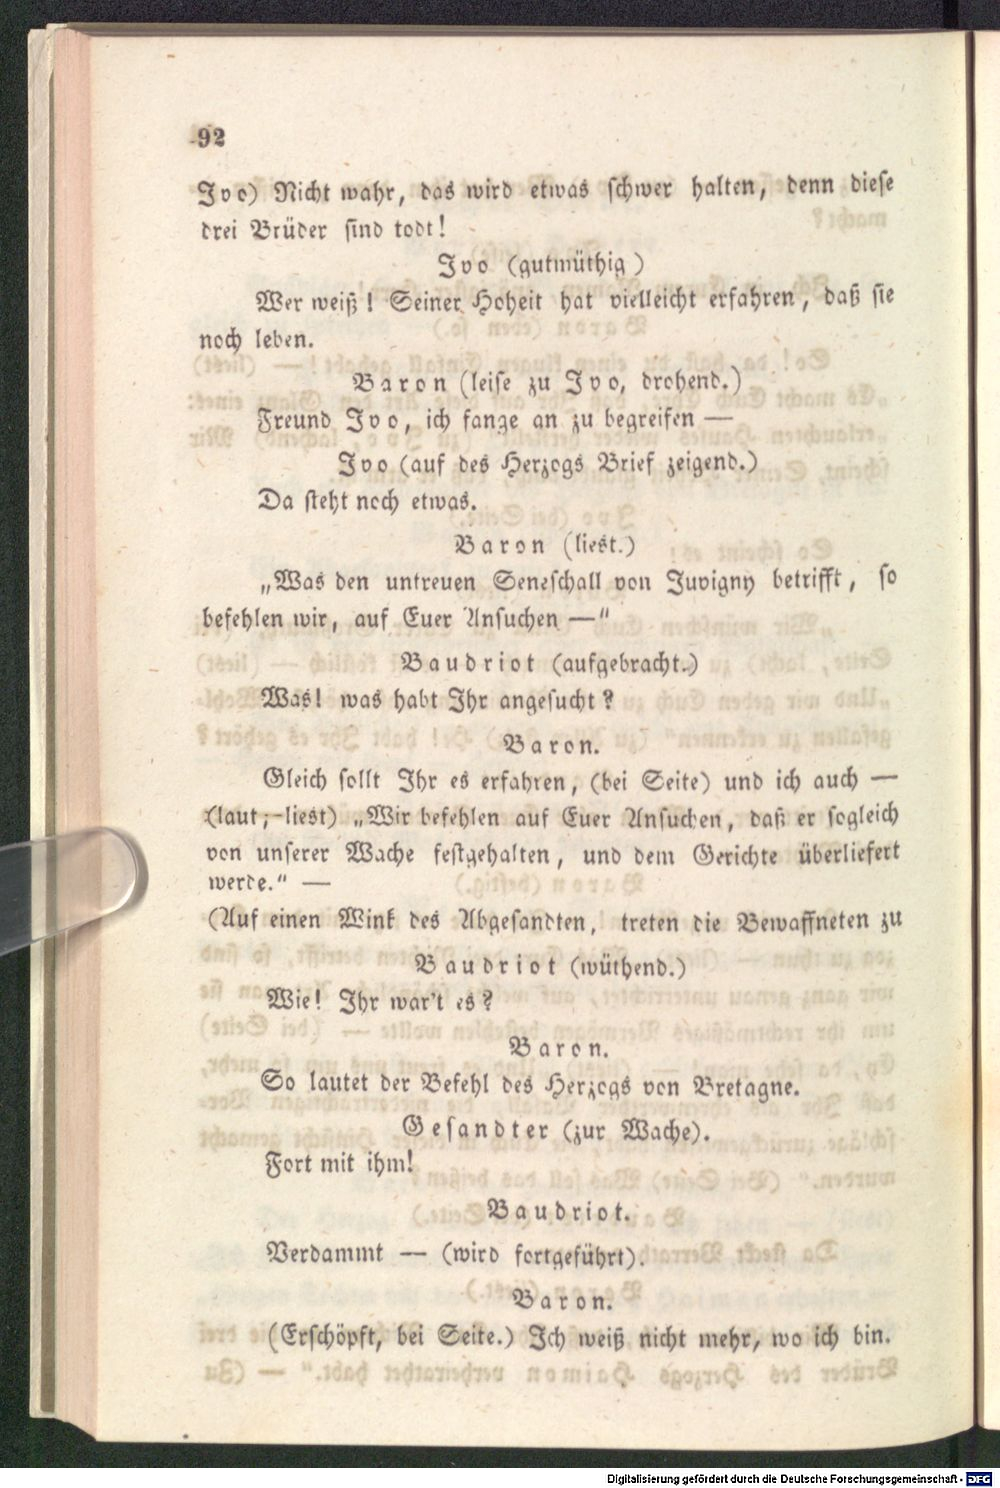 92
Ivo) Nicht wahr, das wird etwas schwer halten, denn diese
drei Brüder sind todt!
Ivo (gutmüthig)
Wer weiß! Seiner Hoheit hat vielleicht erfahren, daß sie
noch leben.
Baron (leise zu Ivo, drohend.)
Freund Ivo, ich fange an zu begreifen —
Ivo (auf des Herzogs Brief zeigend.)
Da steht noch etwas.
Baron (liest.)
„Was den untreuen Seneschall von Juvigny betrifft, so
befehlen wir, auf Euer Ansuchen —“
Baudriot (aufgebracht.)
Was! was habt Ihr angesucht?
Baron.
Gleich sollt Ihr es erfahren, (bei Seite) und ich auch —
(laut; liest) „Wir befehlen auf Euer Ansuchen, daß er sogleich
von unserer Wache festgehalten, und dem Gerichte überliefert
werde.“ —
(Auf einen Wink des Abgesandten, treten die Bewaffneten zu
Baudriot (wüthend.)
Wie! Ihr war't es?
Baron.
So lautet der Befehl des Herzogs von Bretagne.
Gesandter (zur Wache).
Fort mit ihm!
Baudriot.
Verdammt — (wird fortgeführt).
Baron.
(Erschöpft, bei Seite.) Ich weiß nicht mehr, wo ich bin.
Digitalisierung gefördert durch die Deutsche Forschungsgemeinschaft - DFG